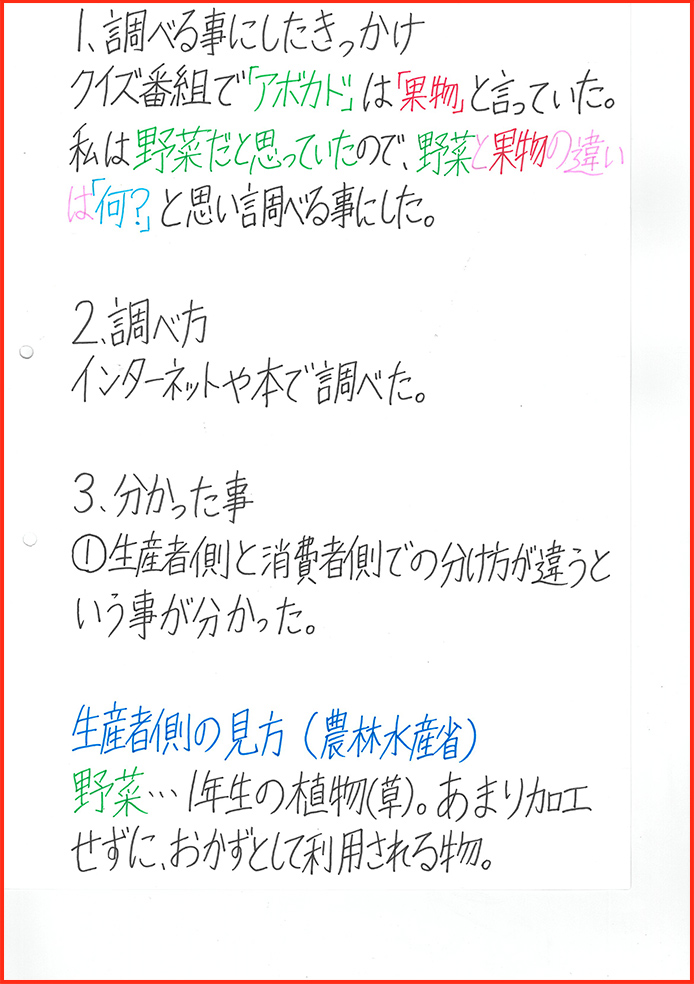 1、調べる事にしたきっかけ
クイズ番組で「アボカド」は「果物」と言っていた。
私は野菜だと思っていたので、野菜と果物の違い
は「何?」と思い調べる事にした。
2、調べ方
インターネットや本で調べた。
3、分かった事
①生産者側と消費者側での分け方が違うと
いう事が分かった。
生産者側の見方(農林水産省)
野菜…1年生の植物(草)。あまり加工
せずに、おかずとして利用される物。